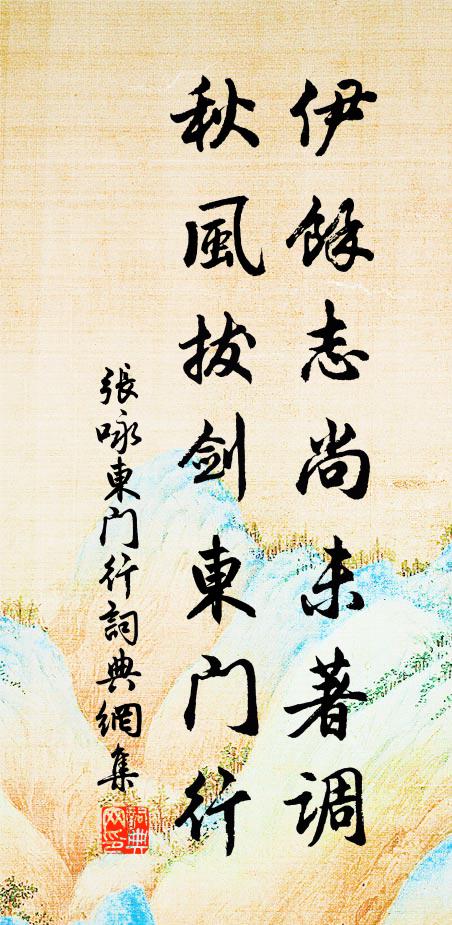 伊餘志尚未著调
秋風拔剑東門行
張咏東門行詞典網集
詞典网印